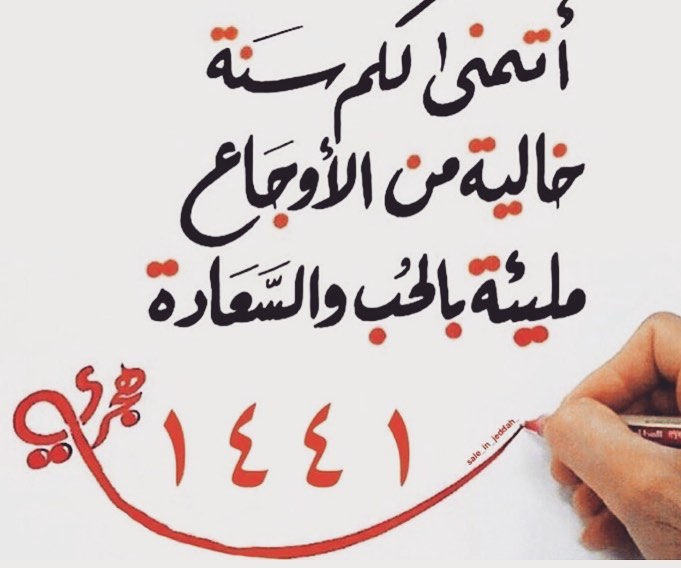 أتمنى لكم سَنة
خالية من الأوجَاع
مليئة بالحُب والسَّعَادة
١٤٤١ هجري
sale_in_jeddah